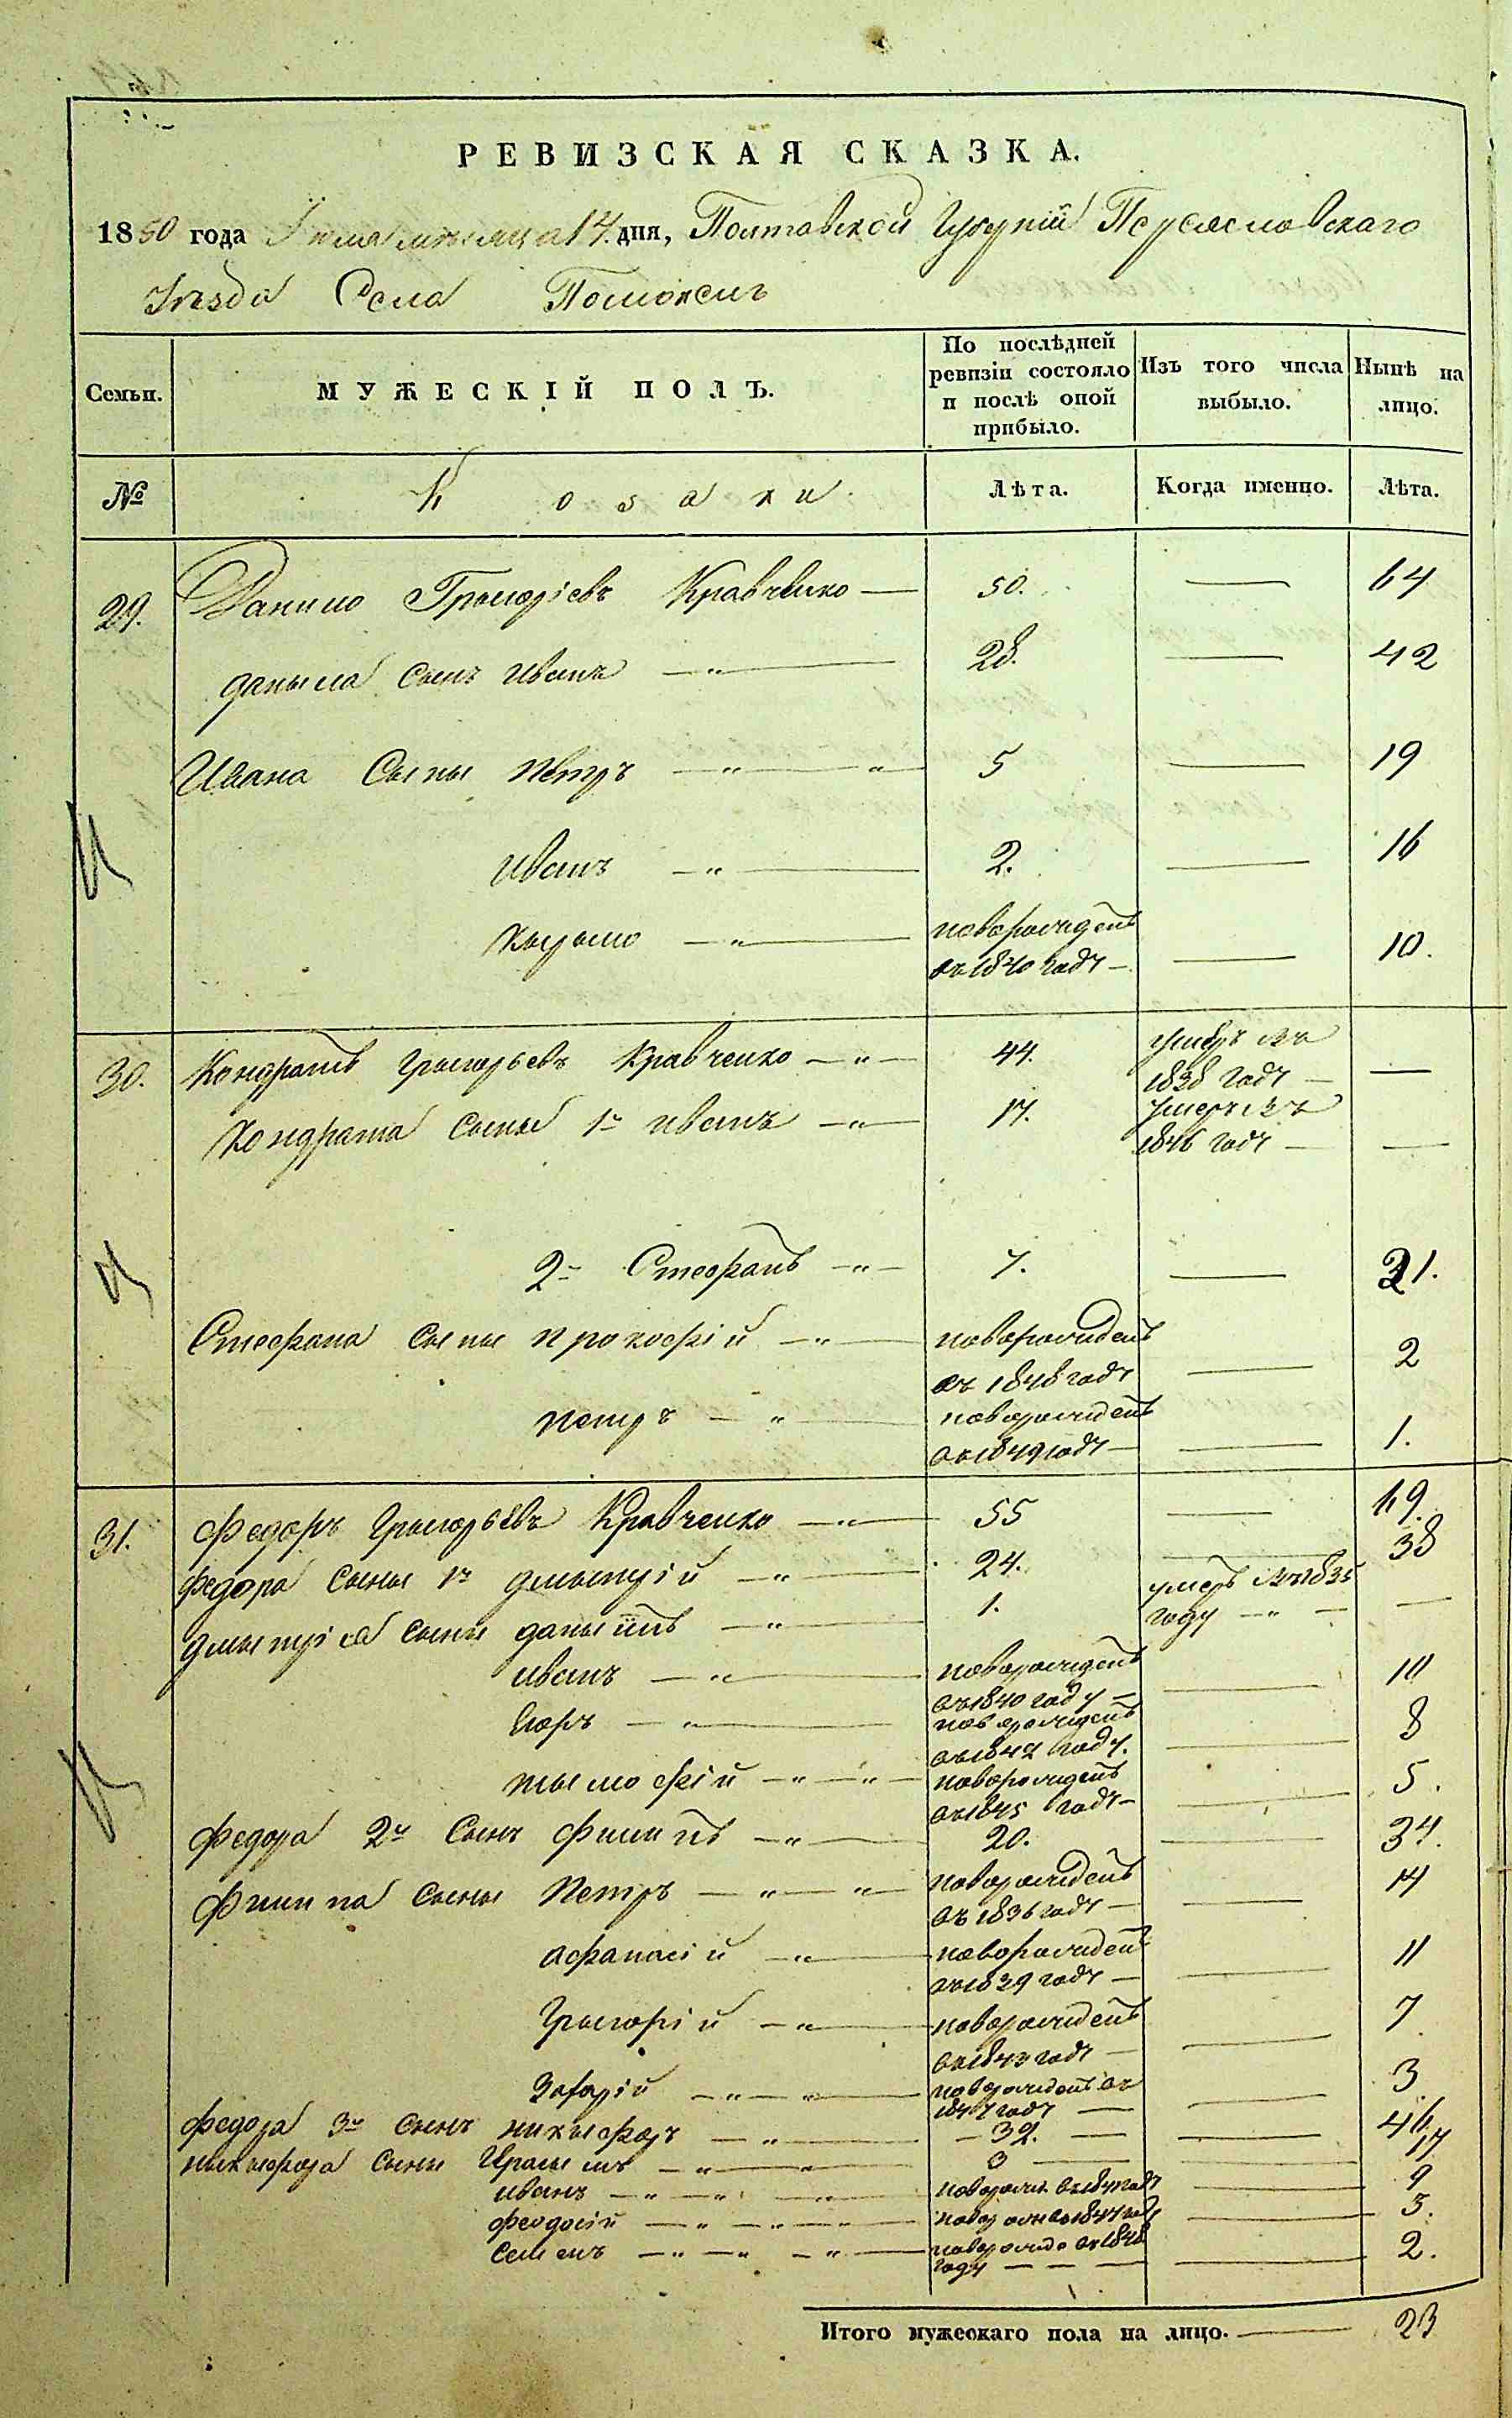 РЕВИЗСКАЯ СКАЗКА.
1850 года Июля месяца 14. дня, Полтавской Губерніи Переясловскаго
Уезда Села Помоклъ
Семьи.
МУЖЕСКІЙ ПОЛЪ.
По послѣдней ревизіи состояло и послѣ оной прибыло.
Изъ того числа выбыло.
Нынѣ на лицо.
№ Козаки Лѣта. Когда именно. Лѣта.
29. Данило Григоріевъ Кравченко — 50. — 64
даныла сынъ Иванъ — " — 28. — 42
Ивана Сыны Петръ — " — " 5 — 19
Иванъ — " — 2. — 16
Кырыло — " — новорожденъ
въ 1840 году — — 10.
30. Кондратъ Григорьевъ Кравченко — " — 44. умеръ въ
1838 году — —
Кондрата Сыны 1й иванъ — " — 17. Умеръ въ
1846 году — —
2й Стефанъ — " — 7. — 21.
Стефана Сыны прокофій — " — новорожденъ
въ 1848 году — 2
петръ — " — новорожденъ
въ 1849 году — — 1.
31. Федоръ Григорьевъ Кравченко — " — 55 — 69.
Федора Сыны 1й дмытрій — " — 24. — 38
дмытрія Сыны даныилъ — " — 1. умеръ въ 1835
году — " — —
иванъ — " — новорожденъ
въ 1840 году — — 10
Егоръ — " — новорожденъ
въ 1842 году. — 8
тымофій — " — " — новорожденъ
въ 1845 году — — 5.
Федора 2й Сынъ Филипъ — " — 20. — 34.
Филипа Сыны Петръ — " — " — новорожденъ
въ 1836 году — — 14
афанасій — " — новорожденъ
въ 1839 году — — 11
Григорій — " — новорожденъ
въ 1843 году — — 7
Захарій — " — " — новорожденъ въ
1847 году — — 3
Федора 3й Сынъ никыфоръ — " — — 32. — — 46
ныкыфора Сыны — " — " — 3 — — 17
иванъ — " — " — " — новорож. въ 1841 году — 9
феодосій — " — " — " — новорож въ 184 году — 5.
Семенъ — " — " — " — новорожде въ 1848
году — — — — 2.
Итого мужескаго пола на лицо. — 23